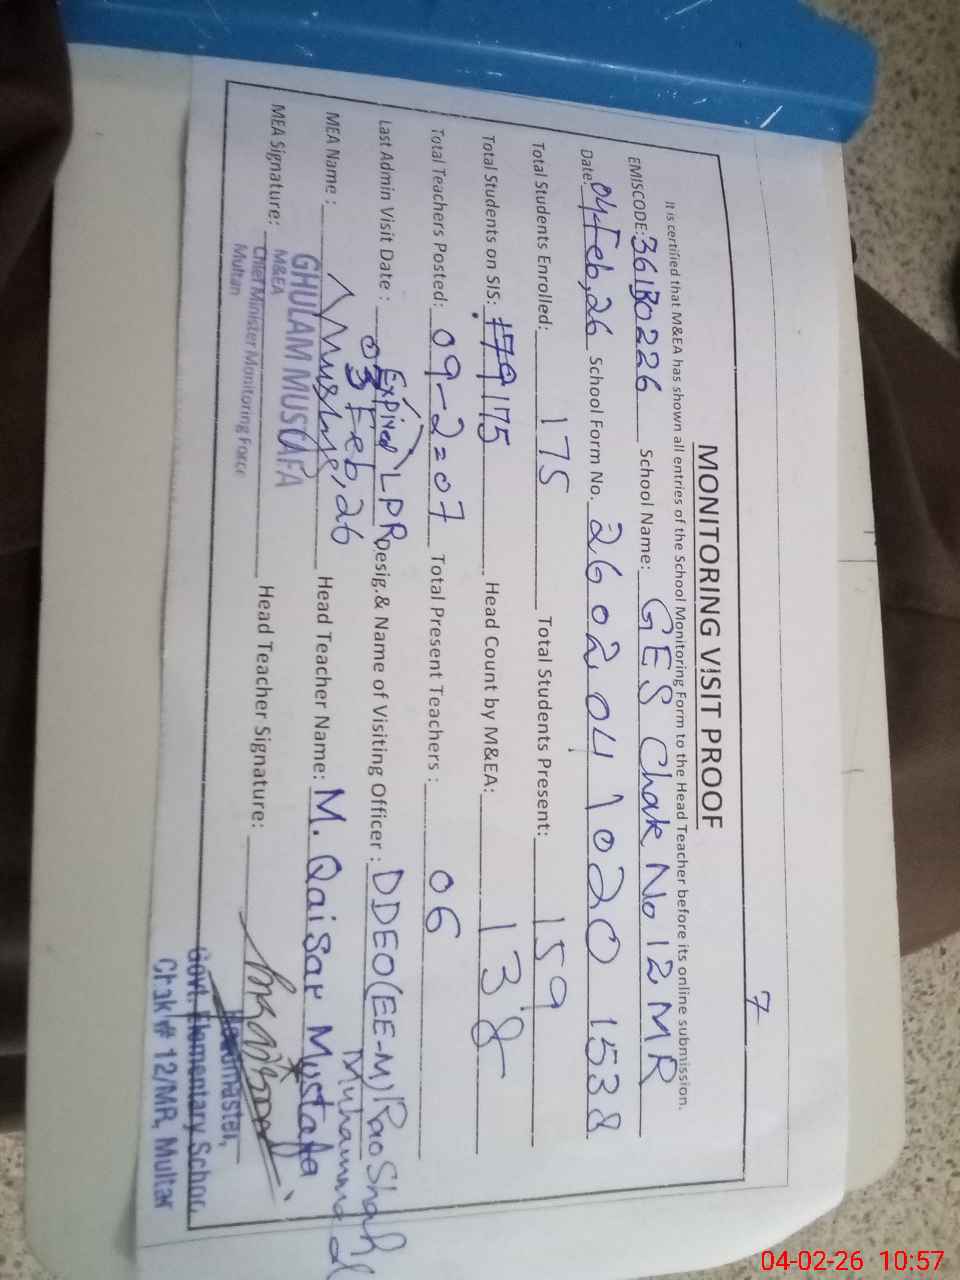 7
MONITORING VISIT PROOF
It is certified that M&EA has shown all entries of the School Monitoring Form to the Head Teacher before its online submission.
EMISCODE: 361B0226 School Name: GES Chak No 12 MR
Date: 04 Feb, 26 School Form No. 26 02 04 1020 1538
Total Students Enrolled: 175 Total Students Present: 159
Total Students on SIS: 179 175 Head Count by M&EA: 138
Total Teachers Posted: 09-2=07 Total Present Teachers : 06
Expired LPR
Last Admin Visit Date : 03 Feb, 26 Desig.& Name of Visiting Officer : DDEO(EE-M) Rao Shah Muhammad
MEA Name : Head Teacher Name: M. Qaisar Mustafa
GHULAM MUSTAFA
MEA Signature: Head Teacher Signature:
M&EA
Chief Minister Monitoring Force
Multan
Headmaster,
Govt. Elementary School
Chak # 12/MR, Multan
04-02-26 10:57